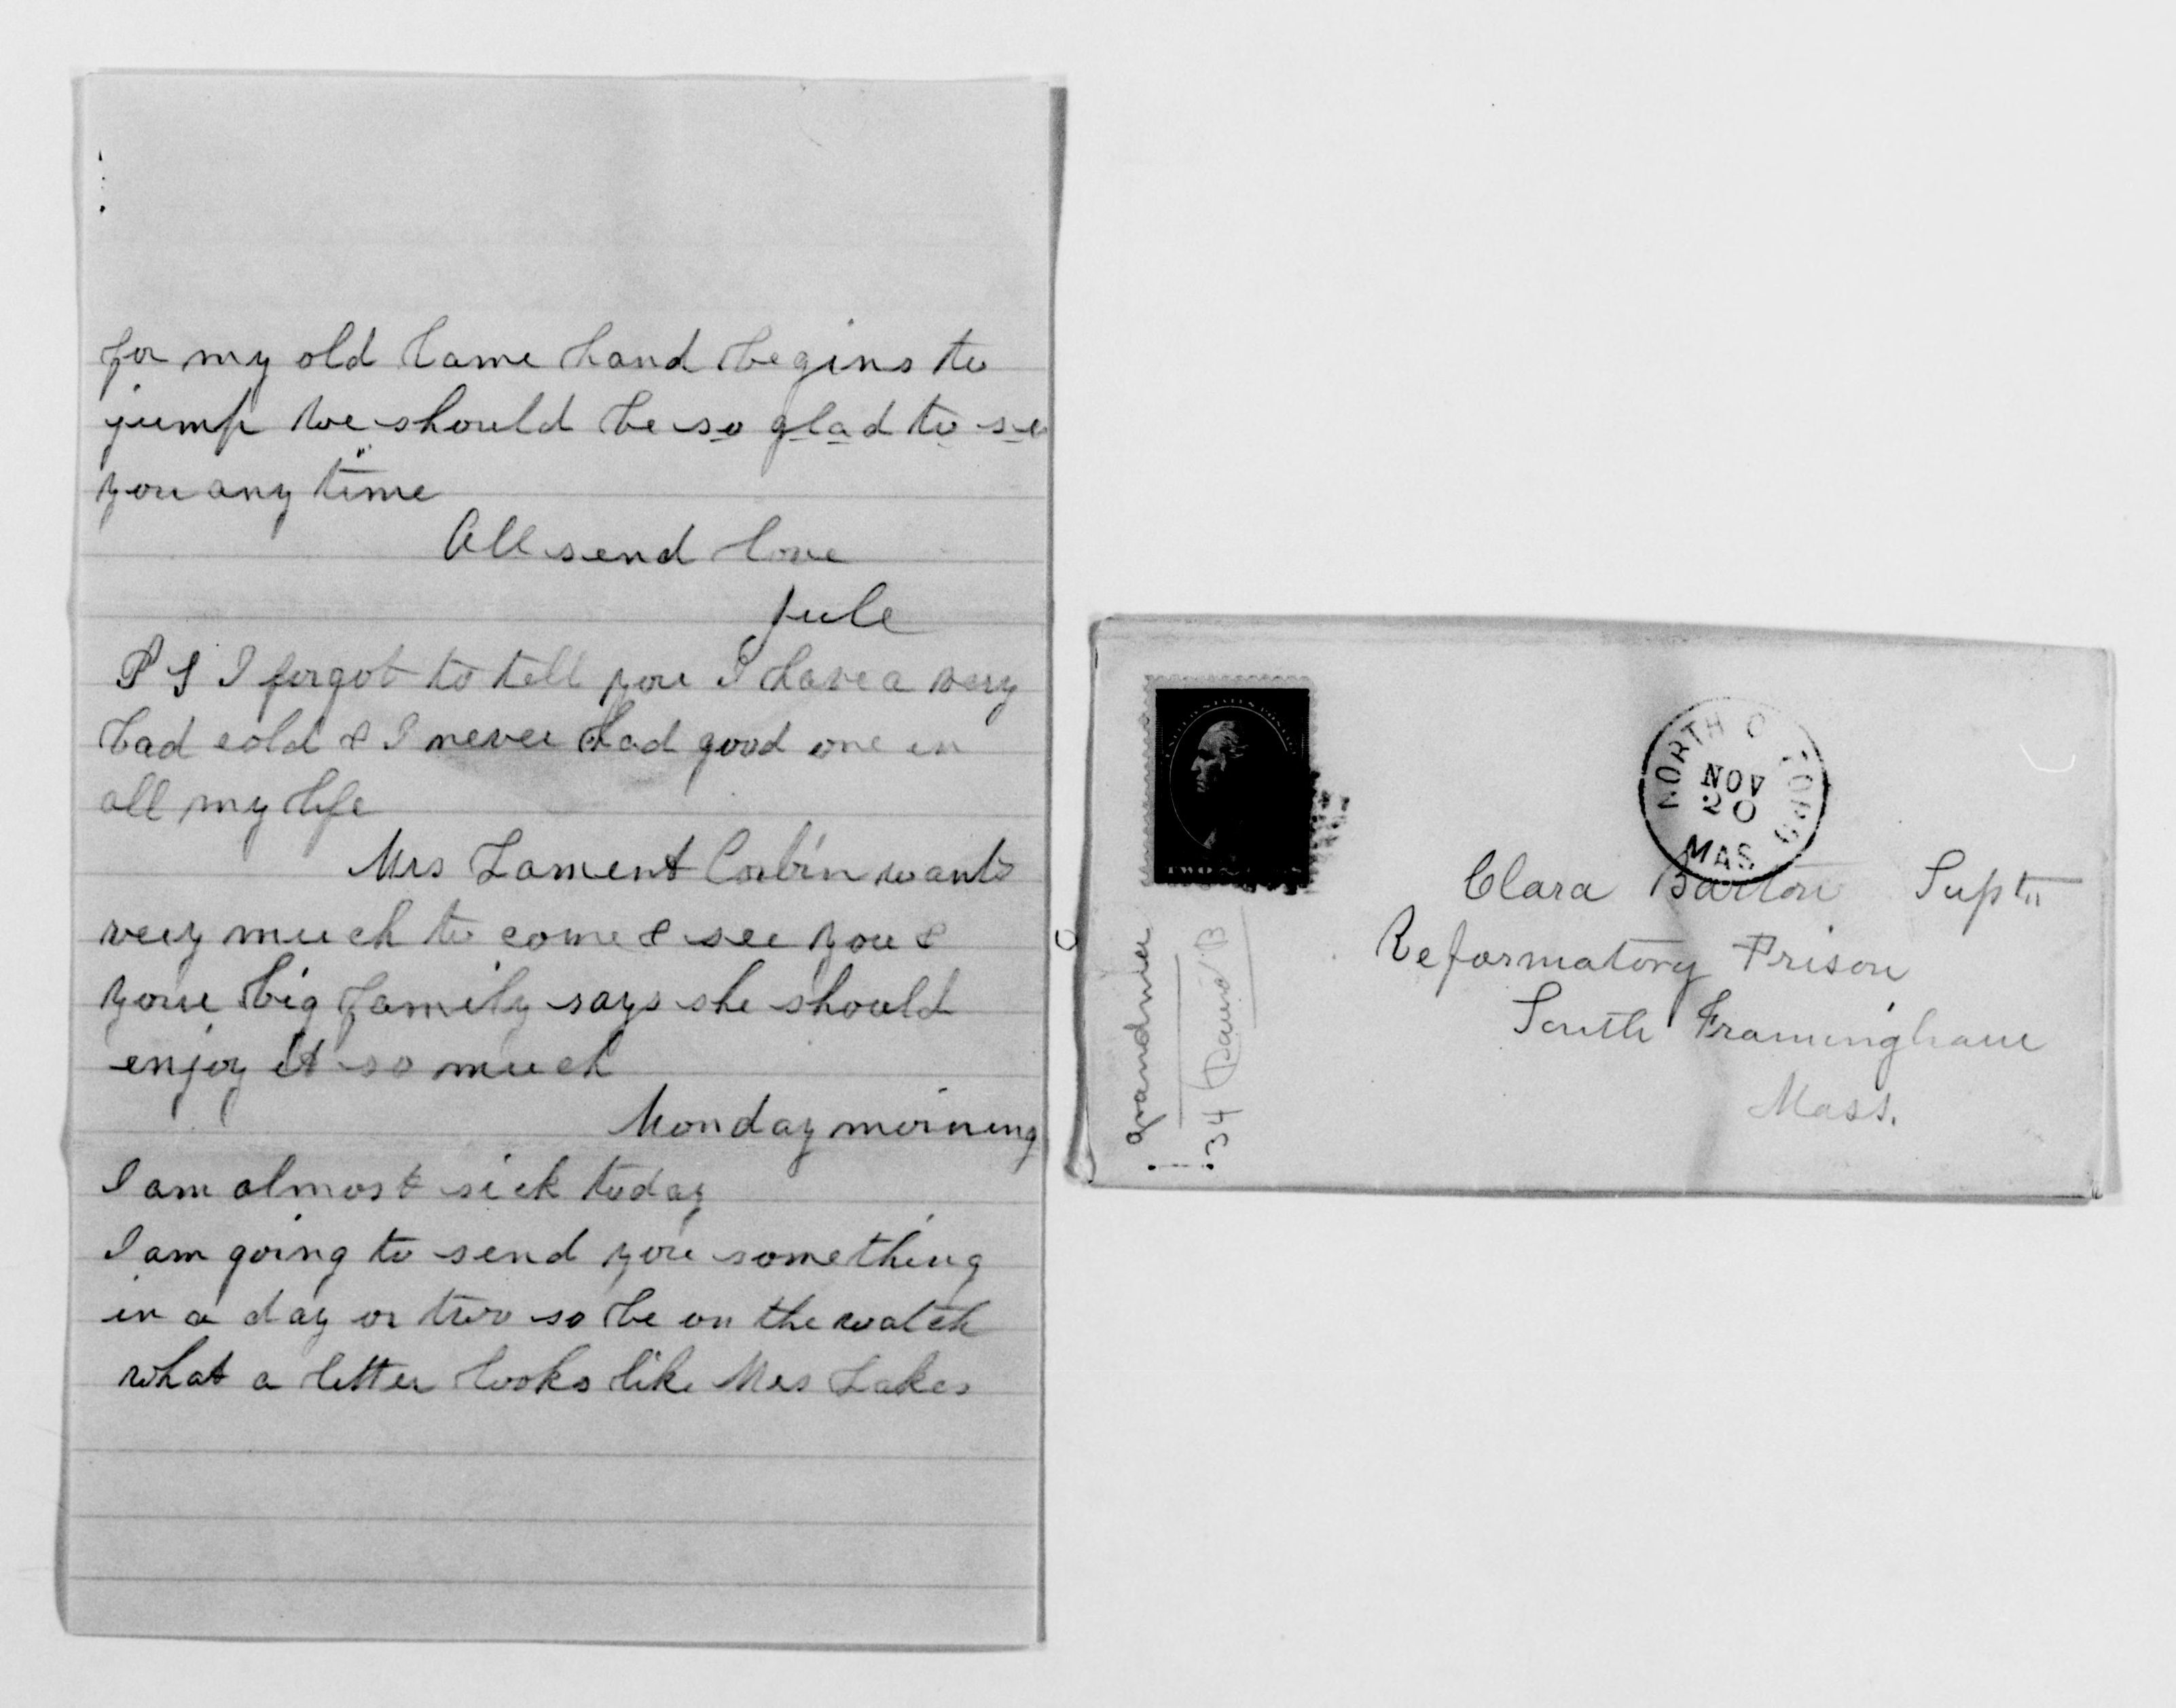 for my old lame hand begins to
jump we should be so glad to see
you any time
All send love
Jule
P S I forgot to tell you I have a very
bad cold & I never had good one in
all my life
Mrs Lament Corbin wants
very much to come & see you &
your big family says she should
enjoy it so much
Monday morning
I am almost sick today
I am going to send you something
in a day or two so be on the watch
what a letter looks like Mrs Lakes
UNITED STATES POSTAGE
TWO
NORTH OXFORD
NOV
20
MAS
Clara Barton Supt
Reformatory Prison
South Framingham
Mass.
34 David B